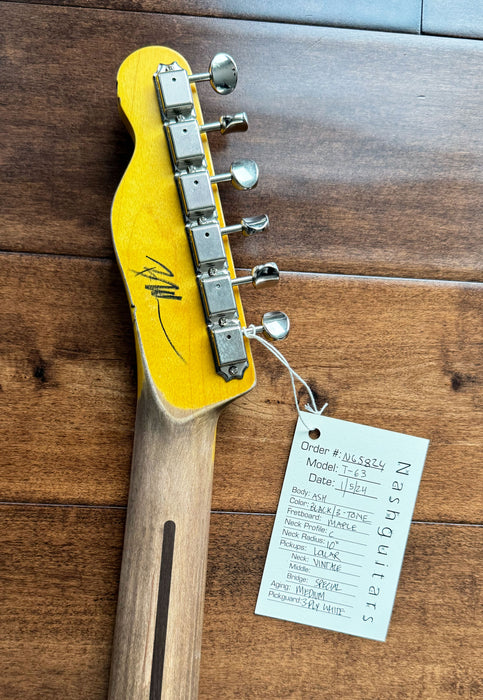 Nashguitars
Order #: NG5824
Model: T-63
Date: 1/5/24
Body: ASH
Color: BLACK/3-TONE
Fretboard: MAPLE
Neck Profile: C
Neck Radius: 10"
Pickups: LOLLAR
Neck: VINTAGE
Middle:
Bridge: SPECIAL
Aging: MEDIUM
Pickguard: 3 PLY WHITE